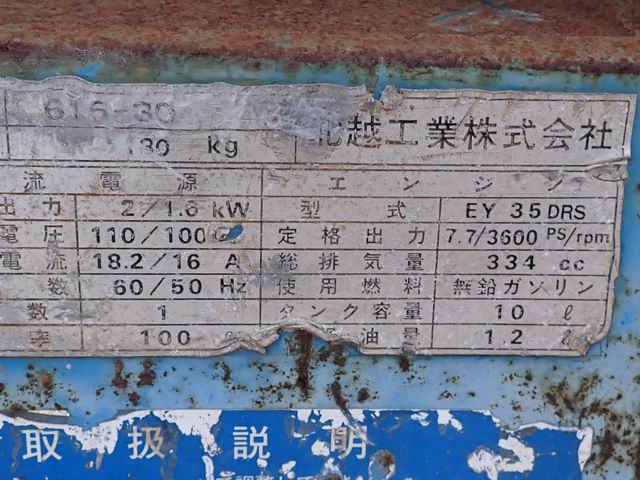 616-30
130 kg
北越工業株式会社
流電源
エンジン
出力 2/1.6 kW
型式 EY 35 DRS
電圧 110/100
定格出力 7.7/3600 PS/rpm
電流 18.2/16 A
総排気量 334 cc
数 60/50 Hz
使用燃料 無鉛ガソリン
数 1
タンク容量 10 ℓ
率 100
油量 1.2 ℓ
取扱説明